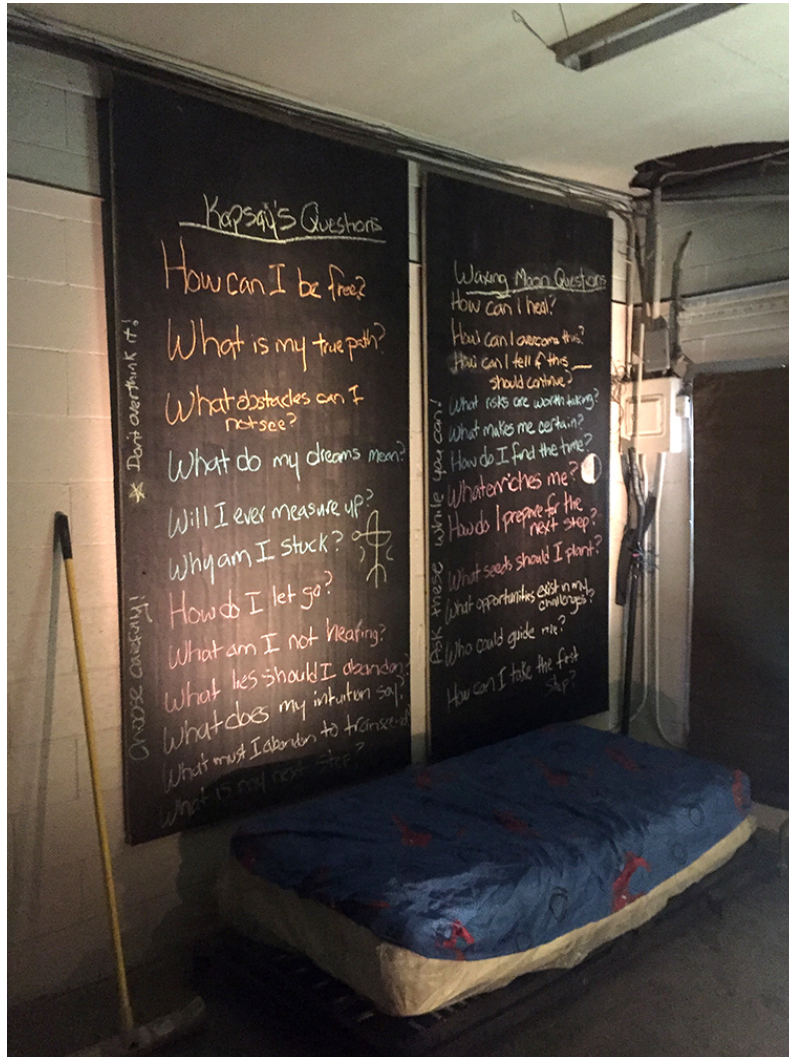 Kapsaij's Questions
How can I be free?
What is my true path?
What obstacles can I
not see?
What do my dreams mean?
Will I ever measure up?
Why am I stuck?
How do I let go?
What am I not hearing?
What lies should I abandon?
What does my intuition say?
What must I abandon to transcend
What is my next step?
Choose carefully!
* Don't overthink it!
Waxing Moon Questions
How can I heal?
How can I overcome this?
How can I tell if this ___
should continue?
What risks are worth taking?
What makes me certain?
How do I find the time?
What enriches me?
How do I prepare for the
next step?
What seeds should I plant?
What opportunities exist in my
challenges?
Who could guide me?
How can I take the first
step?
Ask these while you can!